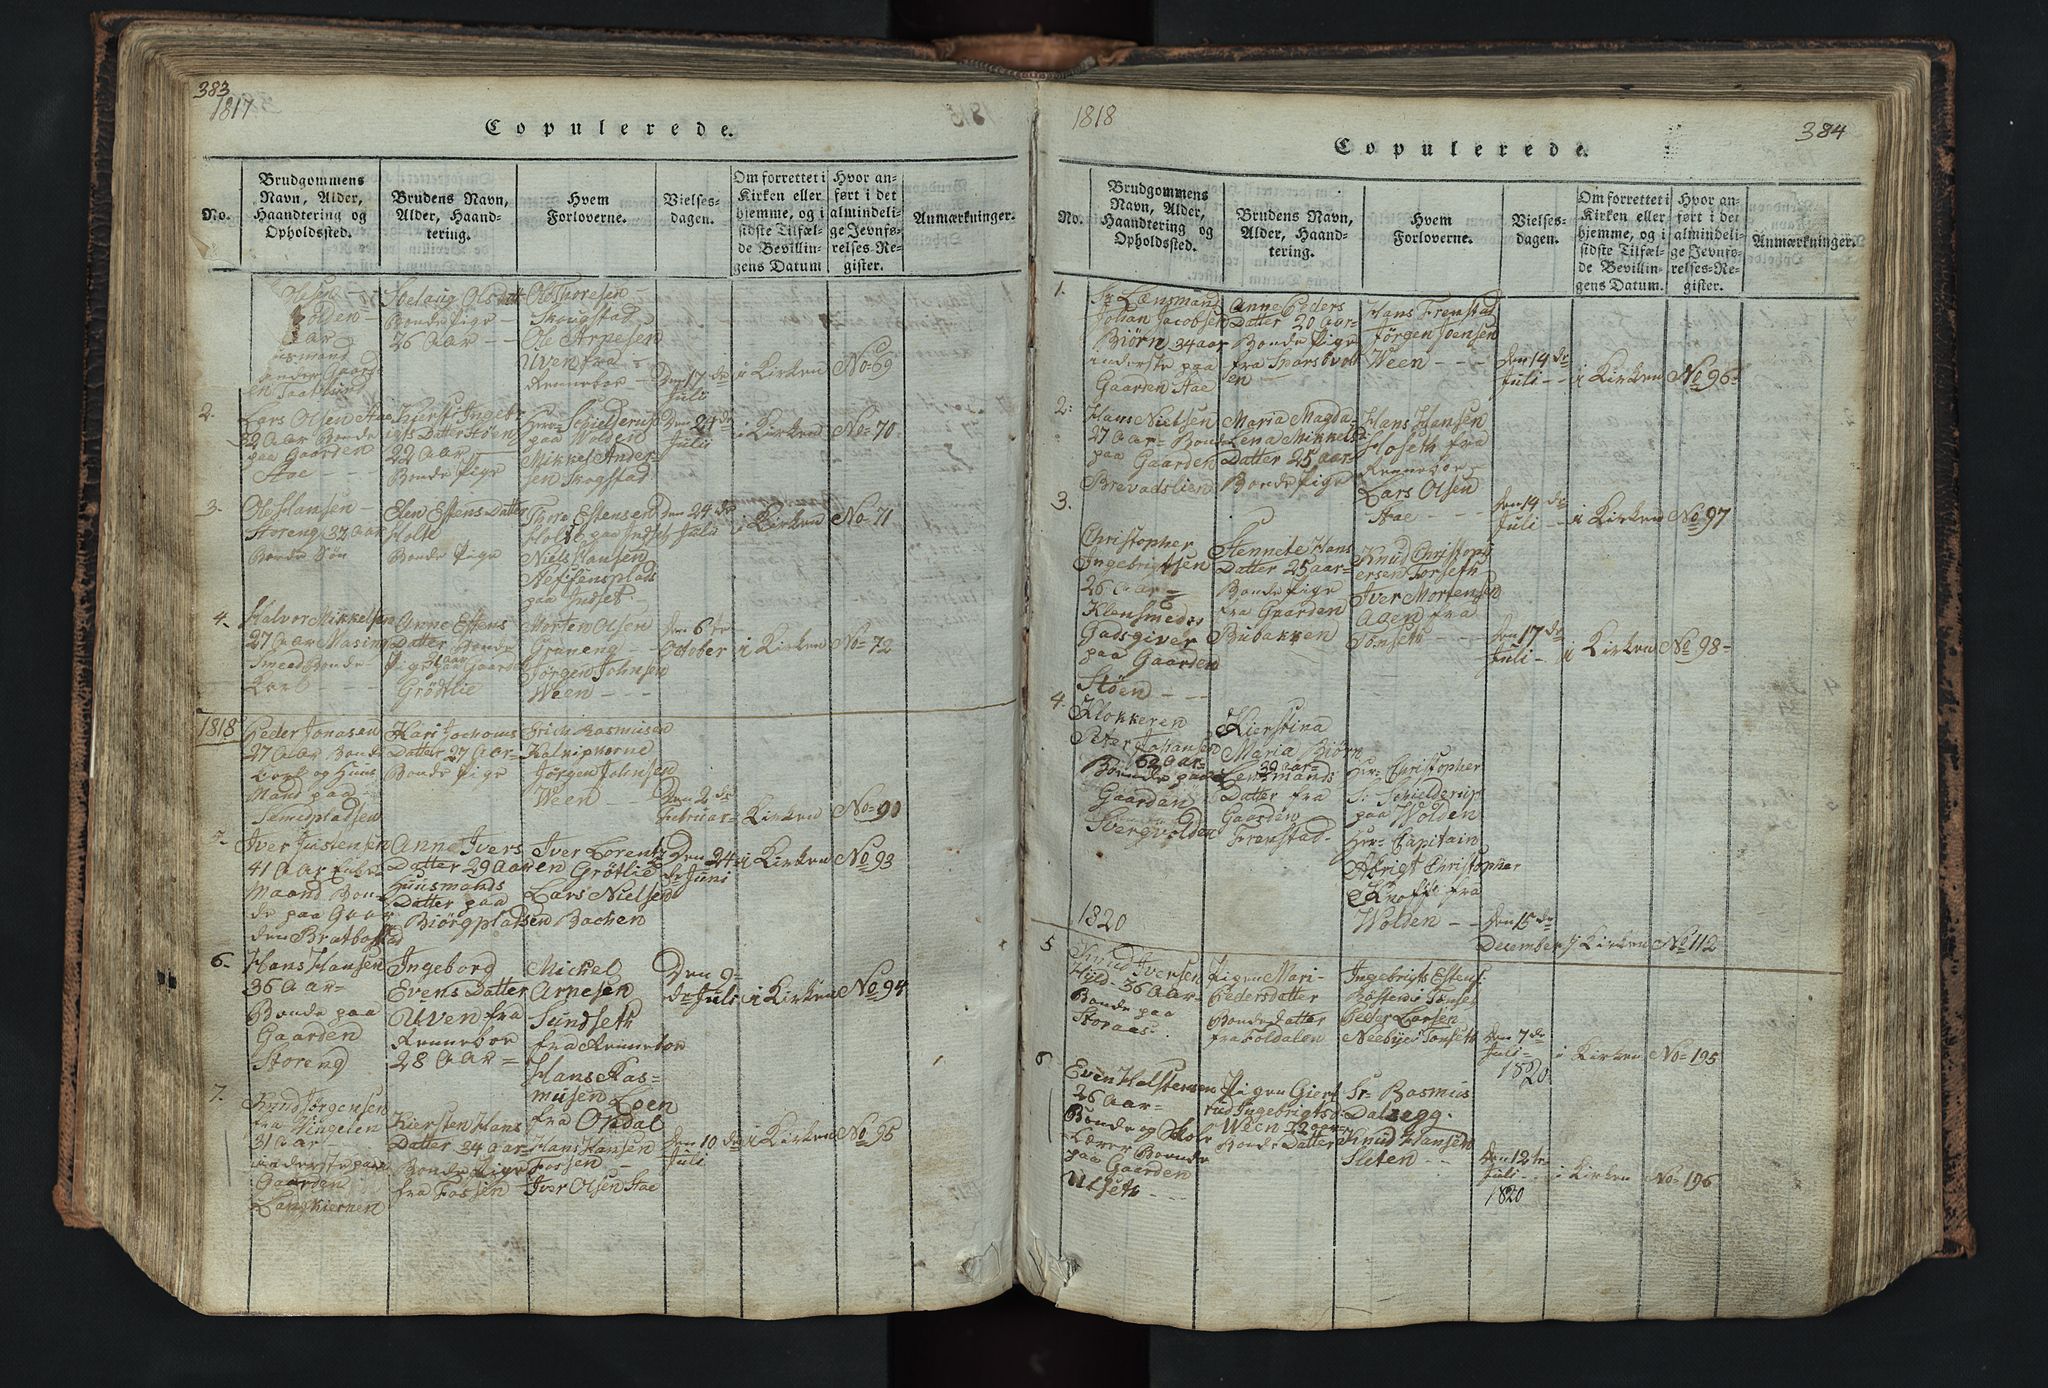 383
1817
Copulerede.
No.
Brudgommens Navn, Alder, Haandtering og Opholdssted.
Brudens Navn, Alder, Haandtering.
Hvem Forloverne.
Vielsesdagen.
Om forrettet i Kirken eller hjemme, og i sidste Tilfælde Bevillingens Datum
Hvor anført i det almindelige Jevnførelses-Register.
Anmærkninger.
Olsen
26 Aar
Bonde Pige
Ole Thoresen
Skougstad
Ole Arnesen
Uven fra
Rennebor
Den 17 de
Juli
i Kirken
No 69
2.
Lars Olsen Aae
32 Aar Bonde
paa Gaarden
Aae
22 Aar
Bonde Pige
Herr Schielderup
paa Wolden
Mikkel Ander-
sen Skogstad
Den 24 de
Juli
i Kirken
No 70
3.
Ole Hansen
Storeng 32 Aar
Bonde Søn
Elen Estens Datter
Holte
Bonde Pige
Thore Estensen
Holte paa Indset
Niels Hansen
paa Indset
den 24 de
Juli
i Kirken
No 71
4.
Halvor Mikkelsen
27 Aar
Anne Estens
Datter
Grødtlie
Morten Olsen
Grøneng
Jørgen Johnsen
Ween
Den 6 te
October
i Kirken
No 72
1818
Peder Jonasen
27 Aar Bonde
Mand paa
Kari Jochoms
Datter 27 Aar
Bonde Pige
Erich Rasmusen
Jørgen Johnsen
Ween
Den 2 de
Februar
i Kirken
No 90
5.
Iver Iustensen
41 Aar Enke
Maand Bon-
de paa Gaar
den
Anne Ivers
Datter 29 Aar
Huusmands
Datter paa
Bjørgpladsen
Iver Lorentz
en Grøtlie
Lars Nielsen
Bachen
Den 24
de Juni
i Kirken
No 93
6.
Hans Hansen
36 Aar
Bonde paa
Gaarden
Storeng
Ingeborg
Evens Datter
Uven fra
Rennebor
28 Aar
Mickel
Arnesen
Sundseth
fra Rennebor
Hans Ras-
musen Loen
fra Opdal
Den 9
de Juli
i Kirken
No 94
7.
Knud Jørgensen
fra Vingelen
31 Aar
inderste paa
Gaarden
Langkiernen
Kiersten Hans
Datter 24 Aar
Bonde Pige
fra Fossen
Hans Hansen
Fossen
Iver Olsen Aae
Den 10 de
Juli
i Kirken
No 95
1818
384
Copulerede.
No.
Brudgommens Navn, Alder, Haandtering og Opholdssted.
Brudens Navn, Alder, Haandtering.
Hvem Forloverne.
Vielsesdagen.
Om forrettet i Kirken eller hjemme, og i sidste Tilfælde Bevillingens Datum.
Hvor anført i det almindelige Jevnførelses-Register.
Anmærkninger.
1.
Sr Lænsmand
Johan Jacobsen
Biørn 34 aar
inderste paa
Gaarden Aae
Anne Peders
Datter 20 Aar
Bonde Pige
Hans Frenstad
Jørgen Joensen
Ween
Den 14 de
Juli
i Kirken
No 96
2.
Hans Nielsen
27 Aar Bonde
paa Gaarden
Brevadslien
Maria Magda-
Lena Mikkels
Datter 25 aar
Bonde Pige
Hans Hansen
Hoseth fra
Rennebor
Lars Olsen
Aae
den 14 de
Juli
i Kirken
No 97
3.
Christopher
Ingebrigtsen
26 Aar
Klensmed
paa Gaarden
Støen
Hans
Datter 25 aar
Bonde Pige
fra Gaarden
Bubakken
Knud Christoph
ersen Torseth
Iver Mortensen
Aaen fra
Tønseth
den 17 de
Juli
i Kirken
No 98
4.
Klokkeren
Peter Johansen
62 Aar
Boende paa
Gaarden
Kierstina
Maria Biørn
39 aar
Lensmands
Datter fra
Gaarden
Frenstad
Her Christopher
S: Schielderup
paa Wolden
Her Capitain
Abrigt Christopher
Knoff fra
Wolden
den 15 de
December
i Kirken
No 112
1820
5
Knud Iversen
Hyld 36 Aar
Bonde paa
Storaas
Pigen Mari
Pedersdatter
Bonde Datter
fra Foldalen
Ingebrigt Estens:
Peder Larsen
Neebye Tønseth
den 7 de
Juli
1820
i Kirken
No 195
6
Even Halstensen
26 Aar
Bonde og Skole
Lærer Boende
paa Gaarden
Utseth
Pigen Giert
rud Ingebrigtsd
Ween 22 aar
Bonde Datter
Sr Rasmus
Dalsegg.
Knud Hansen
Sleten
den 12 te
Juli
1820
i Kirken
No 196